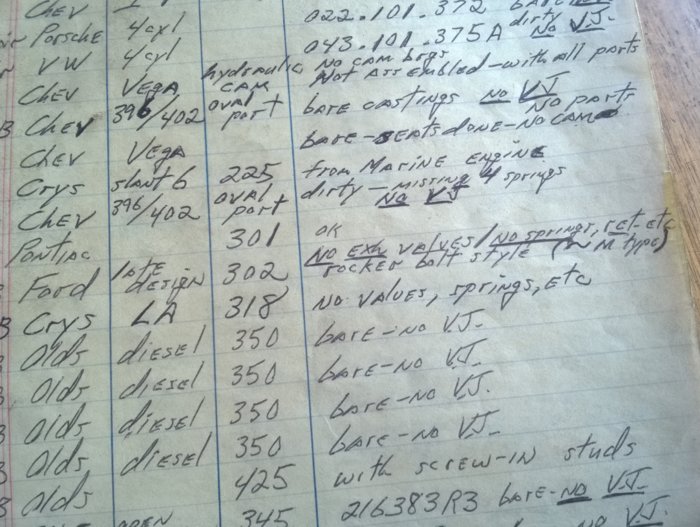 Chev 022.101.372
Porsche 4cyl 043.101.375A dirty No V.J.
VW 4cyl No cam brgs
Chev Vega hydraulic cam Not assembled-with all parts
B Chev 396/402 oval port bare castings No V.J.
Chev Vega bare-seats done-no cam No parts
Crys slant 6 225 from Marine engine
Chev 396/402 oval port dirty-missing 4 springs No VJ
Pontiac 301 OK
Ford late design 302 No exh valves/No springs, ret. etc
rocker bolt style M type)
B Crys LA 318 No valves, springs, etc
Olds diesel 350 bare-no V.J.
Olds diesel 350 bare-no V.J.
Olds diesel 350 bare-no V.J.
Olds diesel 350 bare-no V.J.
Olds 425 with screw-in studs
open 345 216383R3 bare-no V.J.
no V.J.